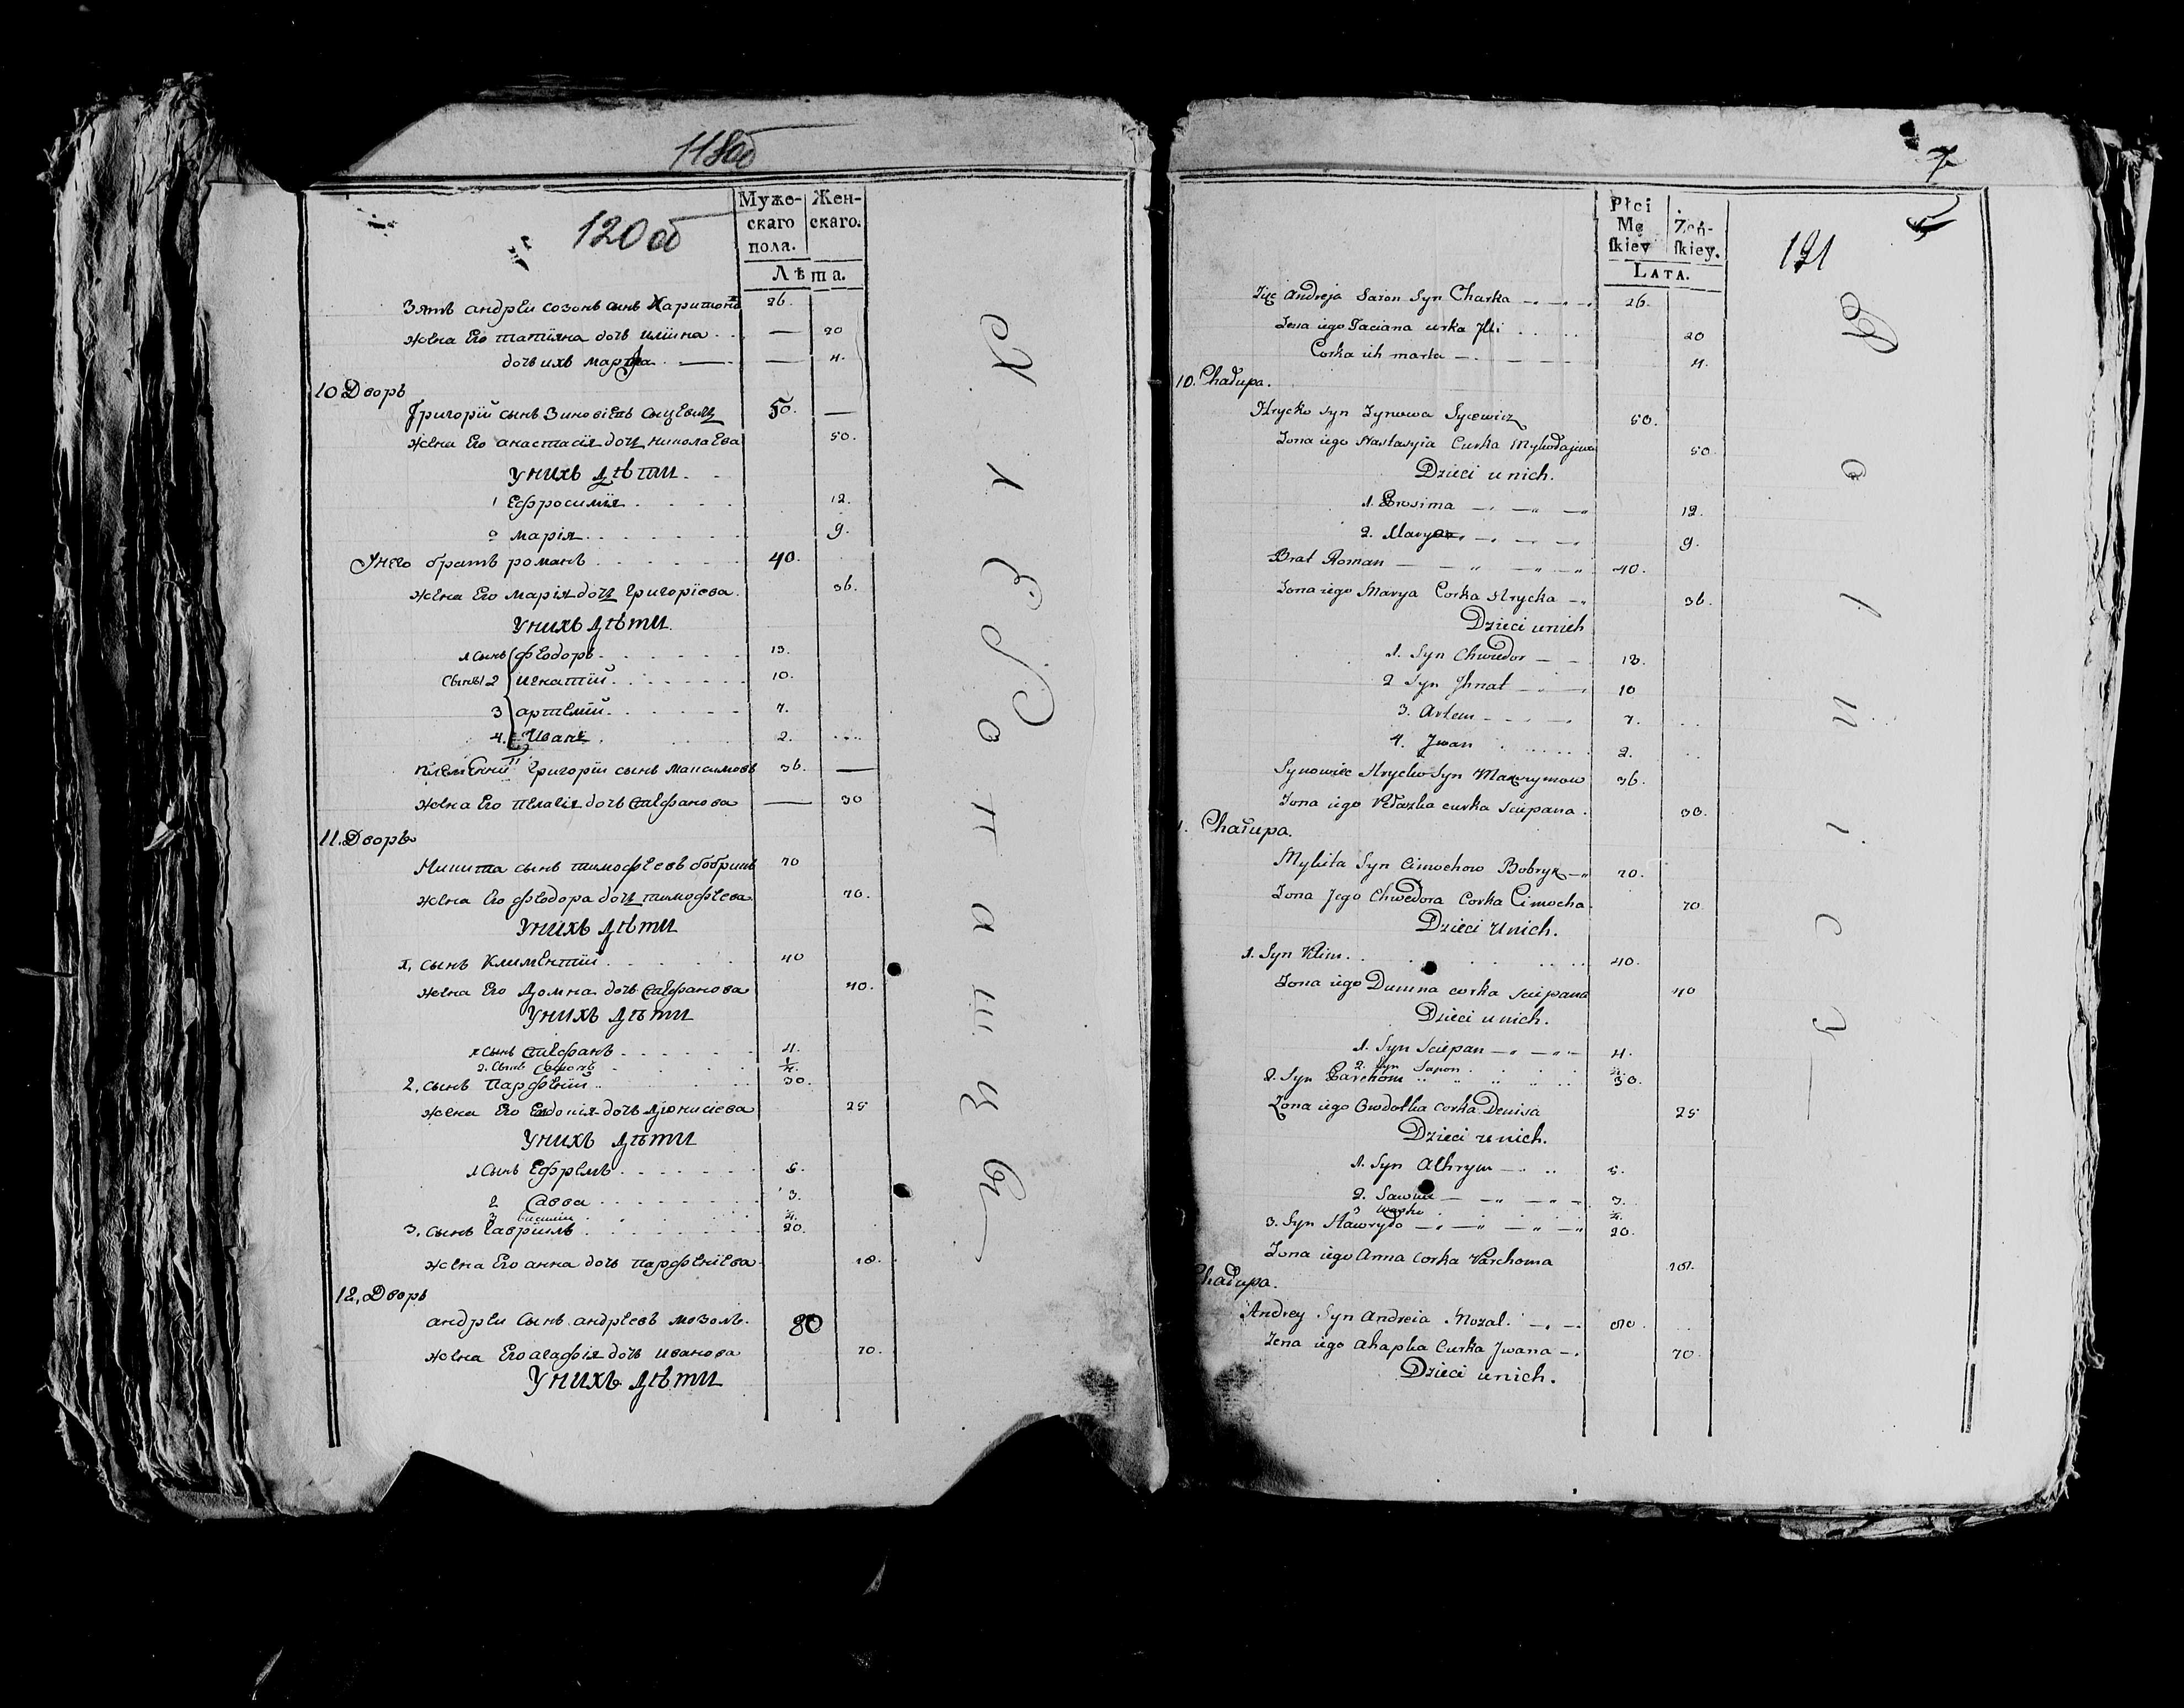 118об
120об
Муже-
скаго
пола.
Жен-
скаго.
Лѣта.
Зять андрѣи созонъ сынъ Харитона 26.
жена Его татіяна дочь иліина — 20
дочь ихъ марѳа — 4.
10 Дворъ
Григорій сынъ Зиновіевъ Сыцевич 50. —
жена Его анастасія доч николаева 50.
Унихъ дѣти
1 Ефросимія 12.
2 марія 9.
Унего братъ романъ 40.
жена Его марія доч григоріева 36.
Унихъ дѣти
1 сынъ феодоръ 13.
сынъ 2 игнатій 10.
3 артемій 7.
4. Иванъ 2.
племенни григоріи сынъ максимовъ 36. —
жена Его пелагія дочь стефанова — 30
11. Дворъ
Никита сынъ тимофѣевъ бобрикъ 70
жена Его феодора доч тимофѣева 70.
Унихъ дѣти
1, сынъ климентій 40
жена Его домна дочь стефанова 40.
Унихъ дѣти
1 сынъ стефанъ 4.
2. сынъ 1/4.
2, сынъ парфеній 30.
жена Его Евдокія дочь діонисіева 25
Унихъ дѣти
1 сынъ Ефремъ 5.
2 Савва 3.
3 1/4.
3, сынъ гавріилъ 20.
жена Его анна дочь парфеніева 18.
12, Дворъ
андрѣи сынъ андрѣевъ мозоль. 80
жена Его агафія дочь иванова 70.
Унихъ дѣти
К 1 Е Р о п а т и ч ъ
7
Płci
Mę
ſkiey
Zeń-
ſkiey.
LATA.
121
Zięc Andreja Sazon Syn Charka 26.
Zona iego Taciana curka Ilii 20
Corka ich marta 4.
10. Chałupa.
Hrycko syn Zynowa Sycewicz 50.
Zona iego Nastasyia Curka Mykołajowa 50
Dzieci u nich.
1. Prosima 12.
2. Marya 9.
Brat Roman 40.
Zona iego Marya Corka Hrycka 36.
Dzieci unich
1. Syn Chwedor 13.
2 Syn Ihnat 10
3. Artem 7.
4. Jwan 2.
Synowiec Hrycko Syn Maxymow 36.
Zona iego Pełazka curka Sciepana. 30.
1. Chałupa.
Mykita Syn Cimochow Bobryk 70.
Zona Jego Chwedora Corka Cimocha. 70
Dzieci Unich.
1. Syn Klim 40.
Zona iego Dumna corka Sciepana 40
Dzieci u nich.
1. Syn Sciepan 4.
2. Syn Sapon 1/4.
2. Syn Parchom 30.
Zona iego Owdotka corka Denisa 25
Dzieci u nich.
1. Syn Achrym 5.
2. Sawa 3.
3 Wasko 1/4.
3. Syn Hawryło 20.
Zona iego Anna corka Parchoma 18.
Chałupa.
Andrey Syn Andreia Mozal. 80.
Zona iego Ahapka Curka Jwana 70
Dzieci unich.